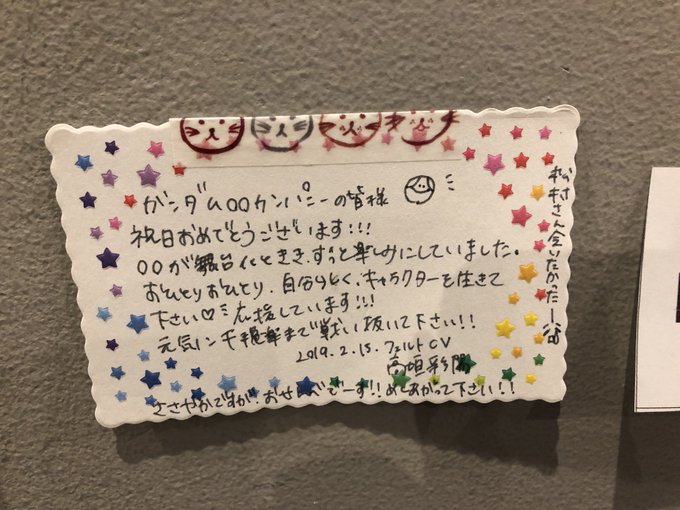 ガンダム00カンパニーの皆様
祝日おめでとうございます!!!
00が舞台化ときき、ずっと楽しみにしていました。
おひとりおひとり、自分らしく、キャラクターを生きて
下さい♡応援しています!!!
元気に千穐楽まで戦い抜いて下さい!!
2019.2.15.フェルトCV
高垣彩陽
ささやかですが、おせんべでーす!!めしあがって下さい!!
松村さん会いたかったー